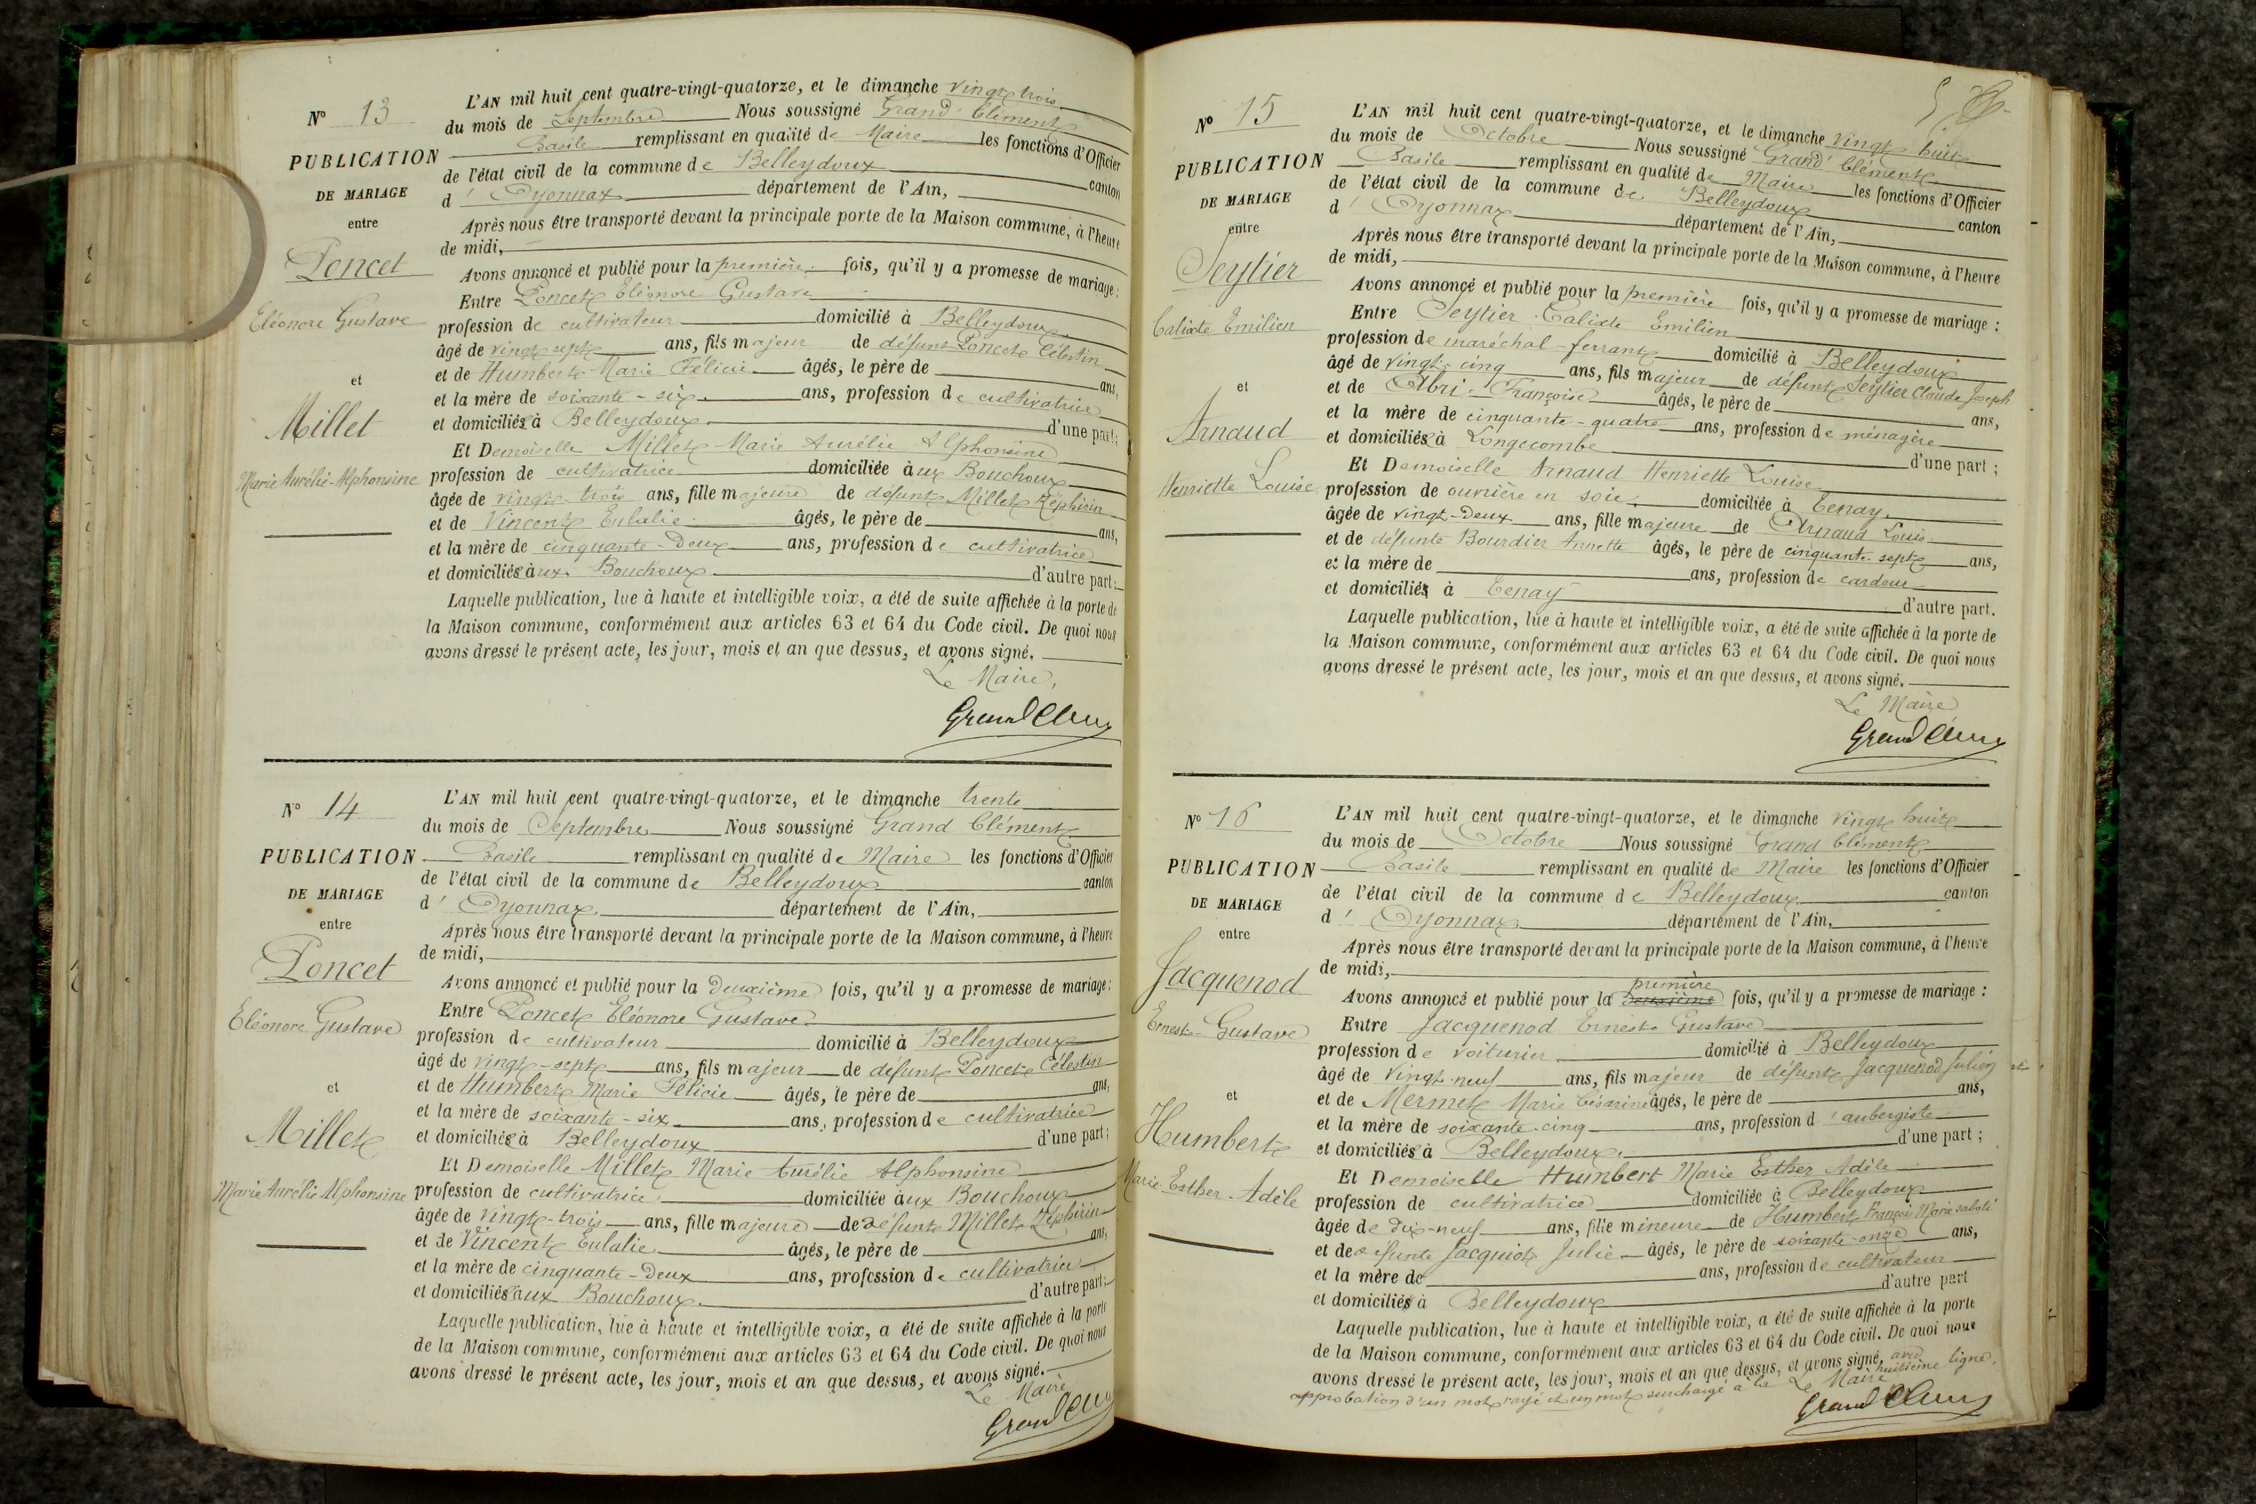 N° 13
PUBLICATION
DE MARIAGE
entre
Poncet
Eléonore Gustave
et
Millet
Marie Aurélie Alphonsine
L'AN mil huit cent quatre-vingt-quatorze, et le dimanche vingt trois
du mois de Septembre Nous soussigné Grand Clément
Basile remplissant en qualité de Maire les fonctions d'Officier
de l'état civil de la commune de Belleydoux canton
d' Oyonnax département de l'Ain,
Après nous être transporté devant la principale porte de la Maison commune, à l'heure
de midi,
Avons annoncé et publié pour la première fois, qu'il y a promesse de mariage :
Entre Poncet Eléonore Gustave
profession de cultivateur domicilié à Belleydoux
âgé de vingt-sept ans, fils majeur de défunt Poncet Célestin
et de Humbert Marie Félicie âgés, le père de ans,
et la mère de soixante-six ans, profession de cultivatrice
et domiciliés à Belleydoux d'une part ;
Et Demoiselle Millet Marie Aurélie Alphonsine
profession de cultivatrice domiciliée aux Bouchoux
âgée de vingt-trois ans, fille majeure de défunt Millet Zéphirin
et de Vincent Eulalie âgés, le père de ans,
et la mère de cinquante-deux ans, profession de cultivatrice
et domiciliés aux Bouchoux d'autre part.
Laquelle publication, lue à haute et intelligible voix, a été de suite affichée à la porte de
la Maison commune, conformément aux articles 63 et 64 du Code civil. De quoi nous
avons dressé le présent acte, les jour, mois et an que dessus, et avons signé.
Le Maire,
Grand Clém
N° 14
PUBLICATION
DE MARIAGE
entre
Poncet
Eléonore Gustave
et
Millet
Marie Aurélie Alphonsine
L'AN mil huit cent quatre-vingt-quatorze, et le dimanche trente
du mois de Septembre Nous soussigné Grand Clément
Basile remplissant en qualité de Maire les fonctions d'Officier
de l'état civil de la commune de Belleydoux canton
d' Oyonnax département de l'Ain,
Après nous être transporté devant la principale porte de la Maison commune, à l'heure
de midi,
Avons annoncé et publié pour la deuxième fois, qu'il y a promesse de mariage :
Entre Poncet Eléonore Gustave
profession de cultivateur domicilié à Belleydoux
âgé de vingt-sept ans, fils majeur de défunt Poncet Célestin
et de Humbert Marie Félicie âgés, le père de ans,
et la mère de soixante-six ans, profession de cultivatrice
et domiciliés à Belleydoux d'une part ;
Et Demoiselle Millet Marie Aurélie Alphonsine
profession de cultivatrice domiciliée aux Bouchoux
âgée de vingt-trois ans, fille majeure de défunt Millet Zéphirin
et de Vincent Eulalie âgés, le père de ans,
et la mère de cinquante-deux ans, profession de cultivatrice
et domiciliés aux Bouchoux d'autre part.
Laquelle publication, lue à haute et intelligible voix, a été de suite affichée à la porte
de la Maison commune, conformément aux articles 63 et 64 du Code civil. De quoi nous
avons dressé le présent acte, les jour, mois et an que dessus, et avons signé.
Le Maire
Grand Clém
5
N° 15
PUBLICATION
DE MARIAGE
entre
Seytier
Calixte Emilien
et
Arnaud
Henriette Louise
L'AN mil huit cent quatre-vingt-quatorze, et le dimanche vingt huit
du mois de Octobre Nous soussigné Grand Clément
Basile remplissant en qualité de Maire les fonctions d'Officier
de l'état civil de la commune de Belleydoux canton
d' Oyonnax département de l'Ain,
Après nous être transporté devant la principale porte de la Maison commune, à l'heure
de midi,
Avons annoncé et publié pour la première fois, qu'il y a promesse de mariage :
Entre Seytier Calixte Emilien
profession de maréchal-ferrant domicilié à Belleydoux
âgé de vingt-cinq ans, fils majeur de défunt Seytier Claude Joseph
et de Abri Françoise âgés, le père de ans,
et la mère de cinquante-quatre ans, profession de ménagère
et domiciliés à Longecombe d'une part ;
Et Demoiselle Arnaud Henriette Louise
profession de ouvrière en soie domiciliée à Tenay
âgée de vingt-deux ans, fille majeure de Arnaud Louis
et de défunte Bourdier Annette âgés, le père de cinquante-sept ans,
et la mère de ans, profession de cardeur
et domiciliés à Tenay d'autre part.
Laquelle publication, lue à haute et intelligible voix, a été de suite affichée à la porte de
la Maison commune, conformément aux articles 63 et 64 du Code civil. De quoi nous
avons dressé le présent acte, les jour, mois et an que dessus, et avons signé.
Le Maire
Grand Clém
N° 16
PUBLICATION
DE MARIAGE
entre
Jacquenod
Ernest Gustave
et
Humbert
Marie Esther Adèle
L'AN mil huit cent quatre-vingt-quatorze, et le dimanche vingt huit
du mois de Octobre Nous soussigné Grand Clément
Basile remplissant en qualité de Maire les fonctions d'Officier
de l'état civil de la commune de Belleydoux canton
d' Oyonnax département de l'Ain,
Après nous être transporté devant la principale porte de la Maison commune, à l'heure
de midi,
première
Avons annoncé et publié pour la deuxième fois, qu'il y a promesse de mariage :
Entre Jacquenod Ernest Gustave
profession de voiturier domicilié à Belleydoux
âgé de vingt-neuf ans, fils majeur de défunt Jacquenod Julien
et de Mermet Marie Césarine âgés, le père de ans,
et la mère de soixante-cinq ans, profession d'aubergiste
et domiciliés à Belleydoux d'une part ;
Et Demoiselle Humbert Marie Esther Adèle
profession de cultivatrice domiciliée à Belleydoux
âgée de dix-neuf ans, fille mineure de Humbert François Marie
et de défunte Jacquiot Julie âgés, le père de soixante-onze ans,
et la mère de ans, profession de cultivateur
et domiciliés à Belleydoux d'autre part
Laquelle publication, lue à haute et intelligible voix, a été de suite affichée à la porte
de la Maison commune, conformément aux articles 63 et 64 du Code civil. De quoi nous
avons dressé le présent acte, les jour, mois et an que dessus, et avons signé, avec
approbation d'un mot rayé et un mot surchargé à la huitième ligne.
Le Maire
Grand Clém